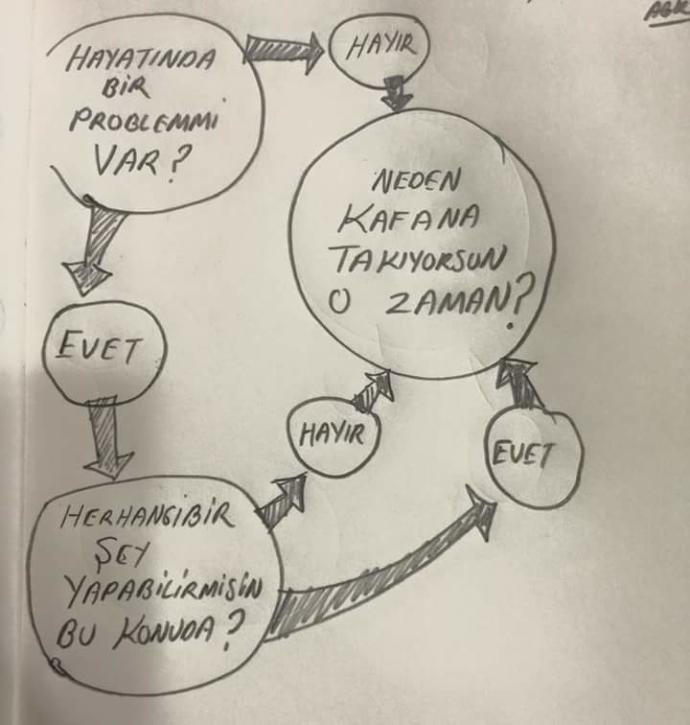 HAYATINDA
BİR
PROBLEMMİ
VAR?
HAYIR
NEDEN
KAFANA
TAKIYORSUN
O ZAMAN?
EVET
HAYIR
EVET
HERHANGİBİR
ŞEY
YAPABİLİRMİSİN
BU KONUDA?